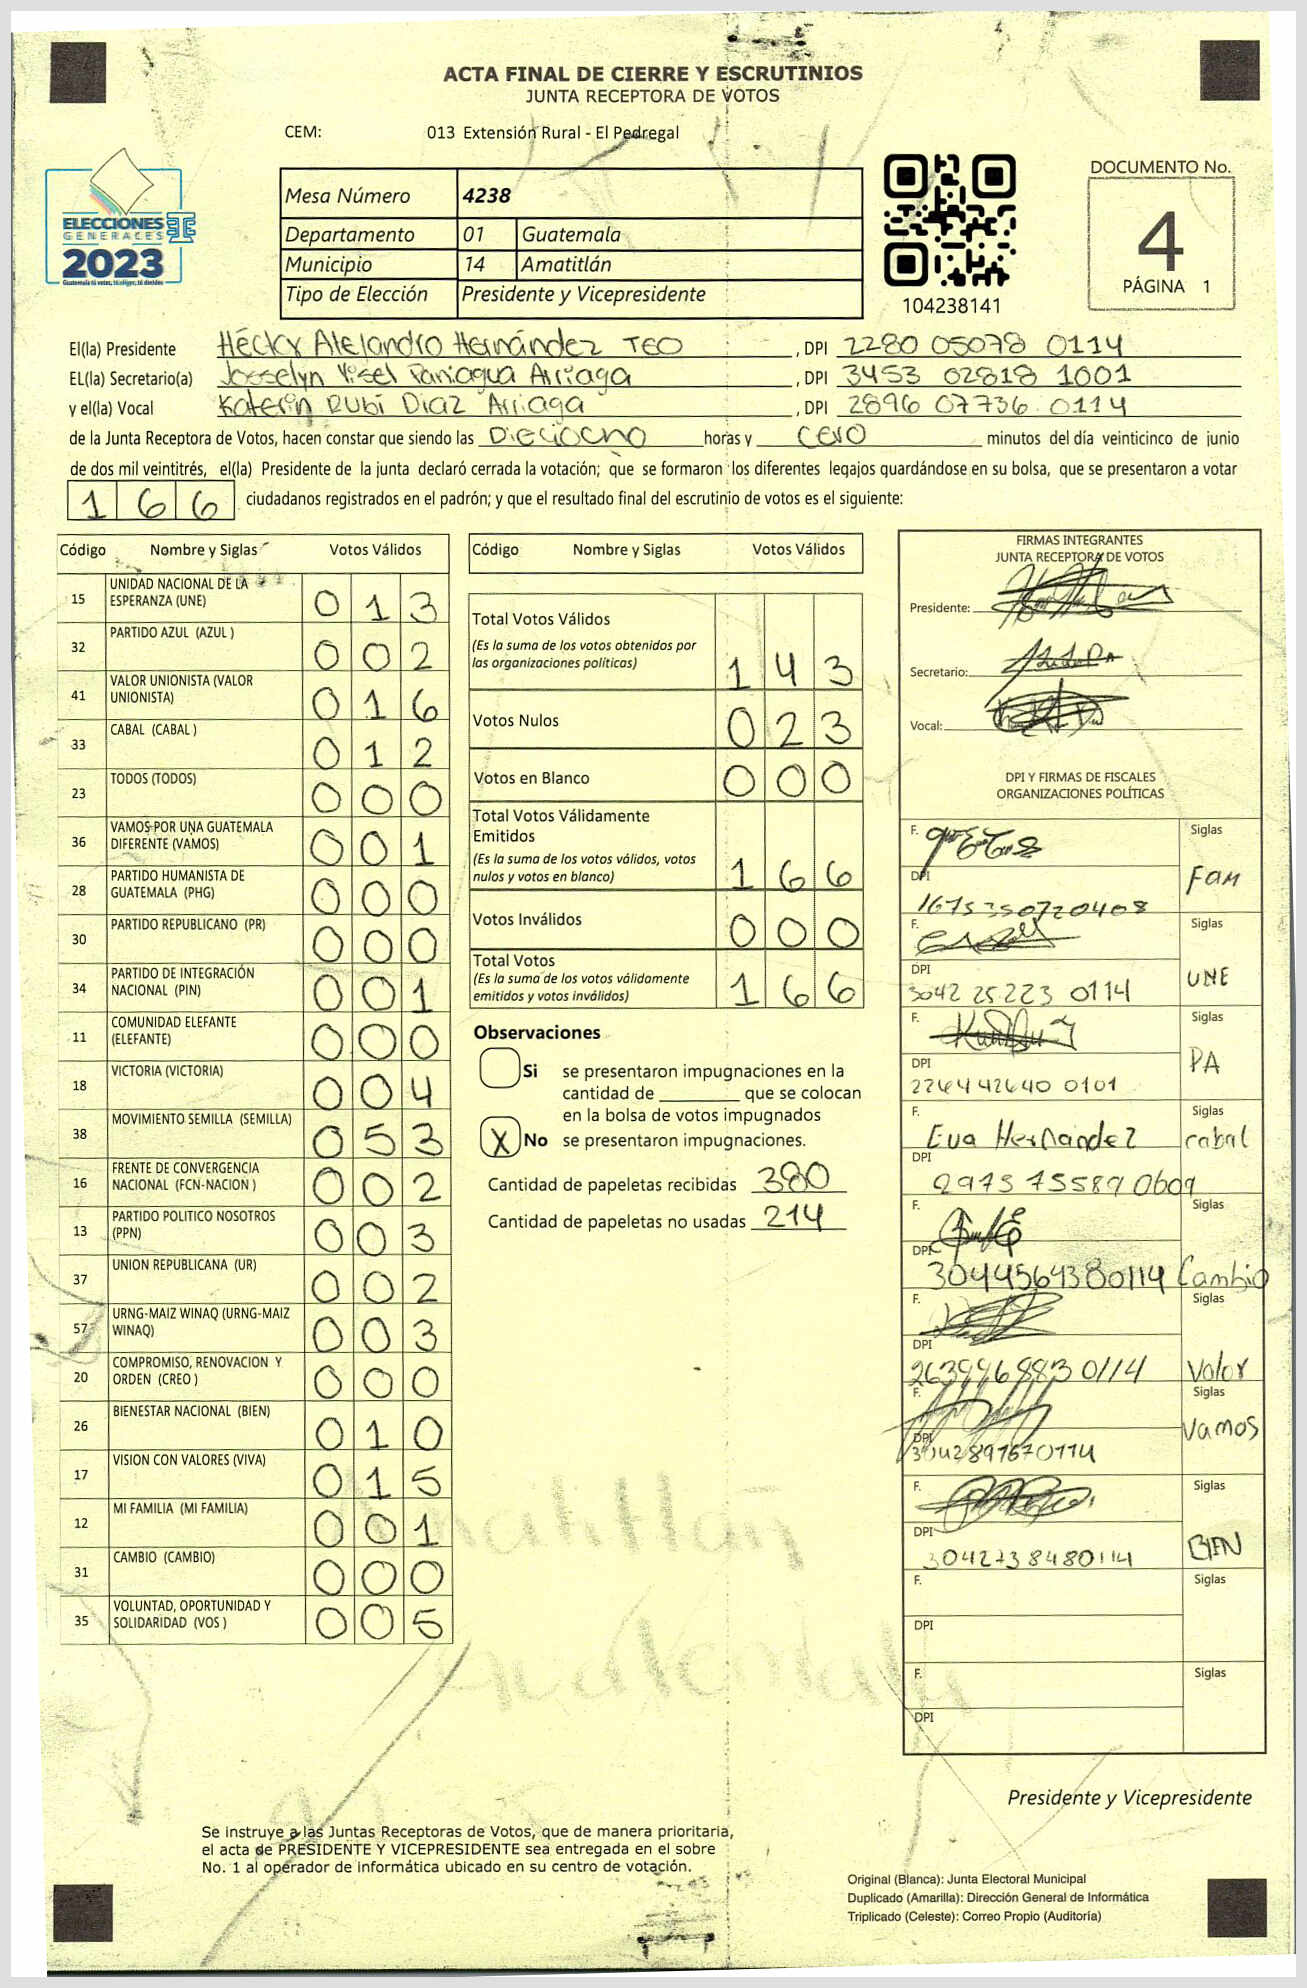 ACTA FINAL DE CIERRE Y ESCRUTINIOS
JUNTA RECEPTORA DE VOTOS
CEM: 013 Extensión Rural - El Pedregal
ELECCIONES
GENERALES
2023
Mesa Número 4238
Departamento 01 Guatemala
Municipio 14 Amatitlán
Tipo de Elección Presidente y Vicepresidente
104238141
DOCUMENTO No.
4
PÁGINA 1
El(la) Presidente Héctor Alejandro Hernández TEO, DPI 2280 05078 0114
EL(la) Secretario(a) Josselyn Yisel Paniagua Arriaga, DPI 3453 02818 1001
y el(la) Vocal Katerin RUBI DIAZ Arriaga, DPI 2896 07736 0114
de la Junta Receptora de Votos, hacen constar que siendo las Dieciocho horas y cero minutos del día veinticinco de junio
de dos mil veintitrés, el(la) Presidente de la junta declaró cerrada la votación; que se formaron los diferentes legajos guardándose en su bolsa, que se presentaron a votar
1 6 6 ciudadanos registrados en el padrón; y que el resultado final del escrutinio de votos es el siguiente:
Código Nombre y Siglas Votos Válidos
15 UNIDAD NACIONAL DE LA ESPERANZA (UNE) 0 1 3
32 PARTIDO AZUL (AZUL ) 0 0 2
41 VALOR UNIONISTA (VALOR UNIONISTA) 0 1 6
33 CABAL (CABAL ) 0 1 2
23 TODOS (TODOS) 0 0 0
36 VAMOS POR UNA GUATEMALA DIFERENTE (VAMOS) 0 0 1
28 PARTIDO HUMANISTA DE GUATEMALA (PHG) 0 0 0
30 PARTIDO REPUBLICANO (PR) 0 0 0
34 PARTIDO DE INTEGRACIÓN NACIONAL (PIN) 0 0 1
11 COMUNIDAD ELEFANTE (ELEFANTE) 0 0 0
18 VICTORIA (VICTORIA) 0 0 4
38 MOVIMIENTO SEMILLA (SEMILLA) 0 5 3
16 FRENTE DE CONVERGENCIA NACIONAL (FCN-NACION ) 0 0 2
13 PARTIDO POLITICO NOSOTROS (PPN) 0 0 3
37 UNION REPUBLICANA (UR) 0 0 2
57 URNG-MAIZ WINAQ (URNG-MAIZ WINAQ) 0 0 3
20 COMPROMISO, RENOVACION Y ORDEN (CREO ) 0 0 0
26 BIENESTAR NACIONAL (BIEN) 0 1 0
17 VISION CON VALORES (VIVA) 0 1 5
12 MI FAMILIA (MI FAMILIA) 0 0 1
31 CAMBIO (CAMBIO) 0 0 0
35 VOLUNTAD, OPORTUNIDAD Y SOLIDARIDAD (VOS ) 0 0 5
Código Nombre y Siglas Votos Válidos
Total Votos Válidos
(Es la suma de los votos obtenidos por
las organizaciones políticas) 1 4 3
Votos Nulos 0 2 3
Votos en Blanco 0 0 0
Total Votos Válidamente
Emitidos
(Es la suma de los votos válidos, votos
nulos y votos en blanco) 1 6 6
Votos Inválidos 0 0 0
Total Votos
(Es la suma de los votos válidamente
emitidos y votos inválidos) 1 6 6
Observaciones
Si se presentaron impugnaciones en la
cantidad de ________ que se colocan
en la bolsa de votos impugnados
X No se presentaron impugnaciones.
Cantidad de papeletas recibidas 380
Cantidad de papeletas no usadas 214
FIRMAS INTEGRANTES
JUNTA RECEPTORA DE VOTOS
Presidente:
Secretario:
Vocal:
DPI Y FIRMAS DE FISCALES
ORGANIZACIONES POLÍTICAS
F. Siglas
DPI 1675350720408 Fam
F. Siglas
DPI 3042 25223 0114 UNE
F. Siglas
DPI 2264 42640 0101 PA
F. Eva Hernandez Siglas
DPI 2973 75587 0609 cabal
F. Siglas
DPI 3044564380114 Cambio
F. Siglas
DPI 263996883 0114 Valor
F. Siglas
DPI 3042897670114 Vamos
F. Siglas
DPI 3042738480114 BIEN
F. Siglas
DPI
F. Siglas
DPI
Amatitlan
Guatemala
Presidente y Vicepresidente
Se instruye a las Juntas Receptoras de Votos, que de manera prioritaria,
el acta de PRESIDENTE Y VICEPRESIDENTE sea entregada en el sobre
No. 1 al operador de informática ubicado en su centro de votación.
Original (Blanca): Junta Electoral Municipal
Duplicado (Amarilla): Dirección General de Informática
Triplicado (Celeste): Correo Propio (Auditoría)